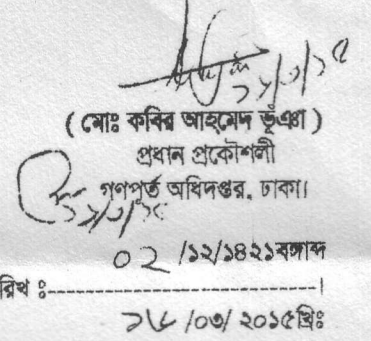 ১৬/৩/১৫
( মোঃ কবির আহমেদ ভূঁঞা )
প্রধান প্রকৌশলী
গণপূর্ত অধিদপ্তর, ঢাকা।
০২ /১২/১৪২১বঙ্গাব্দ
রিখ ঃ---------------------------।
১৬ /০৩/ ২০১৫খ্রিঃ